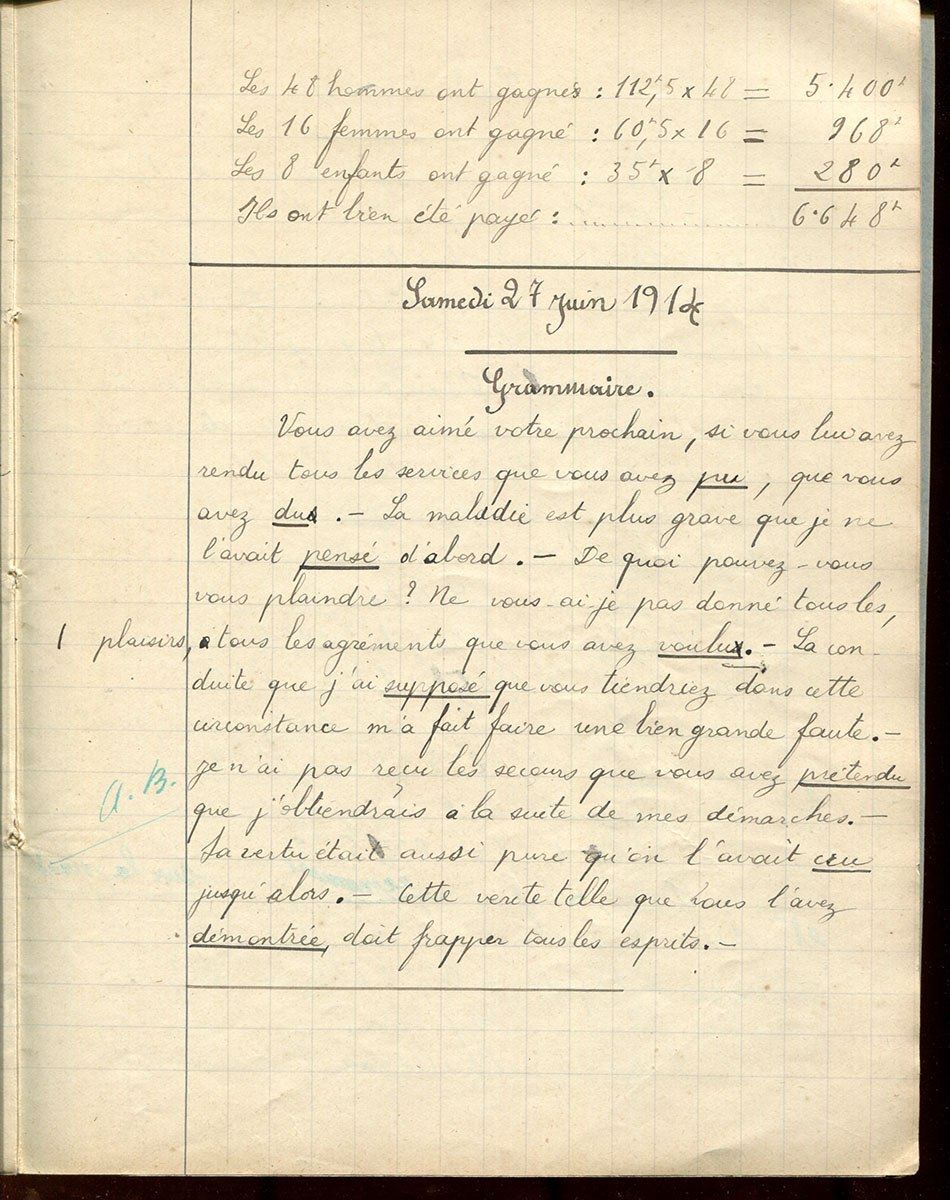 Les 48 hommes ont gagnés : 112f,5 x 48 = 5.400f
Les 16 femmes ont gagné : 60f,5 x 16 = 968f
Les 8 enfants ont gagné : 35f x 8 = 280f
Ils ont bien été payé : ................ 6.648f
Samedi 27 juin 1914
Grammaire.
Vous avez aimé votre prochain, si vous lui avez
rendu tous les services que vous avez pu, que vous
avez du. – La maladie est plus grave que je ne
l'avait pensé d'abord. – De quoi pouvez-vous
vous plaindre ? Ne vous-ai-je pas donné tous les,
1 plaisirs, tous les agréments que vous avez voulu. – La con-
duite que j'ai supposé que vous tiendriez dans cette
circonstance m'a fait faire une bien grande faute. –
Je n'ai pas reçu les secours que vous avez prétendu
A. B.
que j'obtiendrais a la suite de mes démarches. –
Sa vertu était aussi pure qu'on l'avait cru
jusqu'alors. – Cette verite telle que vous l'avez
démontrée, doit frapper tous les esprits. –